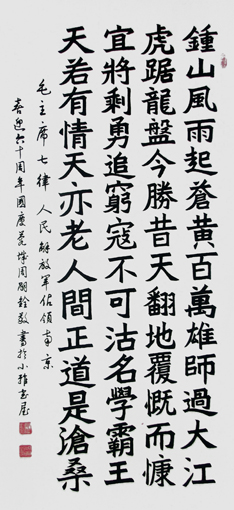 鍾山風雨起蒼黃百萬雄師過大江
虎踞龍盤今勝昔天翻地覆慨而慷
宜將剩勇追窮寇不可沽名學霸王
天若有情天亦老人間正道是滄桑
毛主席七律人民解放軍佔領南京
喜迎六十周年國慶周敬書於小雅書屋